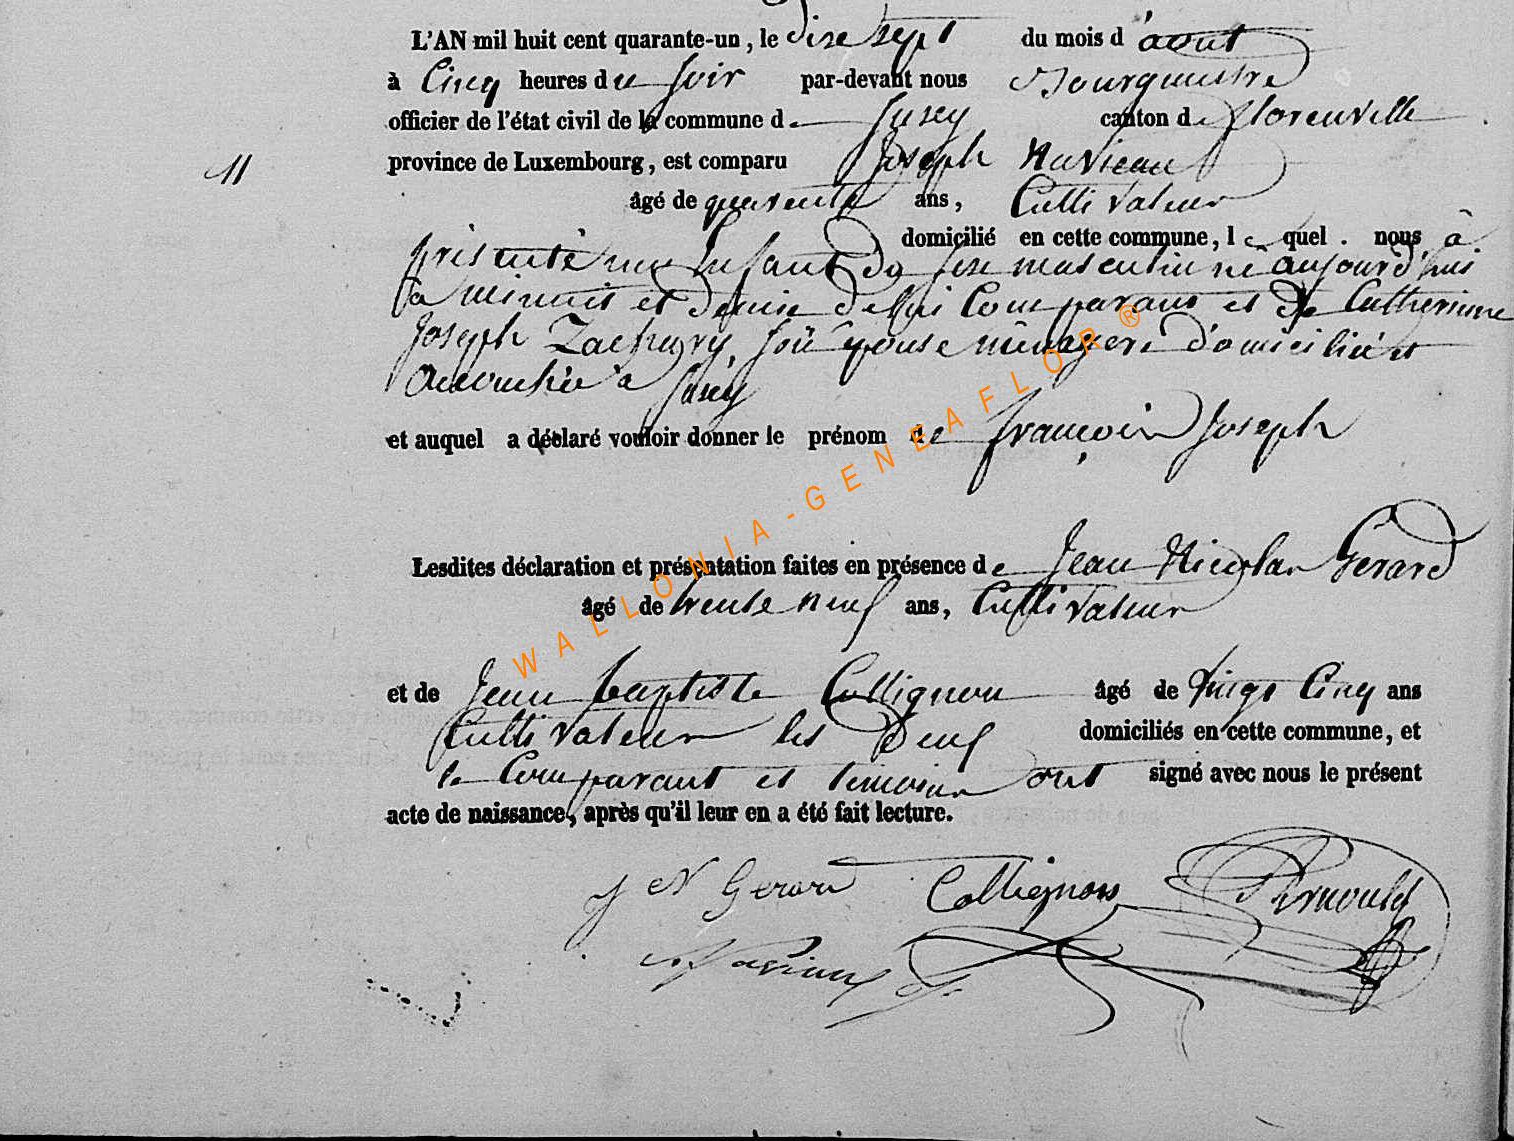 L'AN mil huit cent quarante-un, le dixe sept du mois d'aout
à Cinq heures du soir par-devant nous Bourguestre
officier de l'état civil de la commune de Jusey canton de florenville
11 province de Luxembourg, est comparu Joseph
âgé de quarente ans, Cultivateur
domicilié en cette commune, le quel nous à
présenté un Enfant du sexe masculin né aujourd'hui
a minuit et demie de lui Comparant et de Catherinne
Joseph Zachary, son épouse ménagere domicilié et
accouchée a Jusey
et auquel a déclaré vouloir donner le prénom de françois Joseph
Lesdites déclaration et présentation faites en présence de Jean Nicolas Gérard
âgé de trente neuf ans, Cultivateur
et de Jean baptiste Collignon âgé de vingt Cinq ans
Cultivateur les deux domiciliés en cette commune, et
le Comparant et temoins ont signé avec nous le présent
acte de naissance, après qu'il leur en a été fait lecture.
J N Gerard Collignon
WALLONIA-GENEAFLOR®